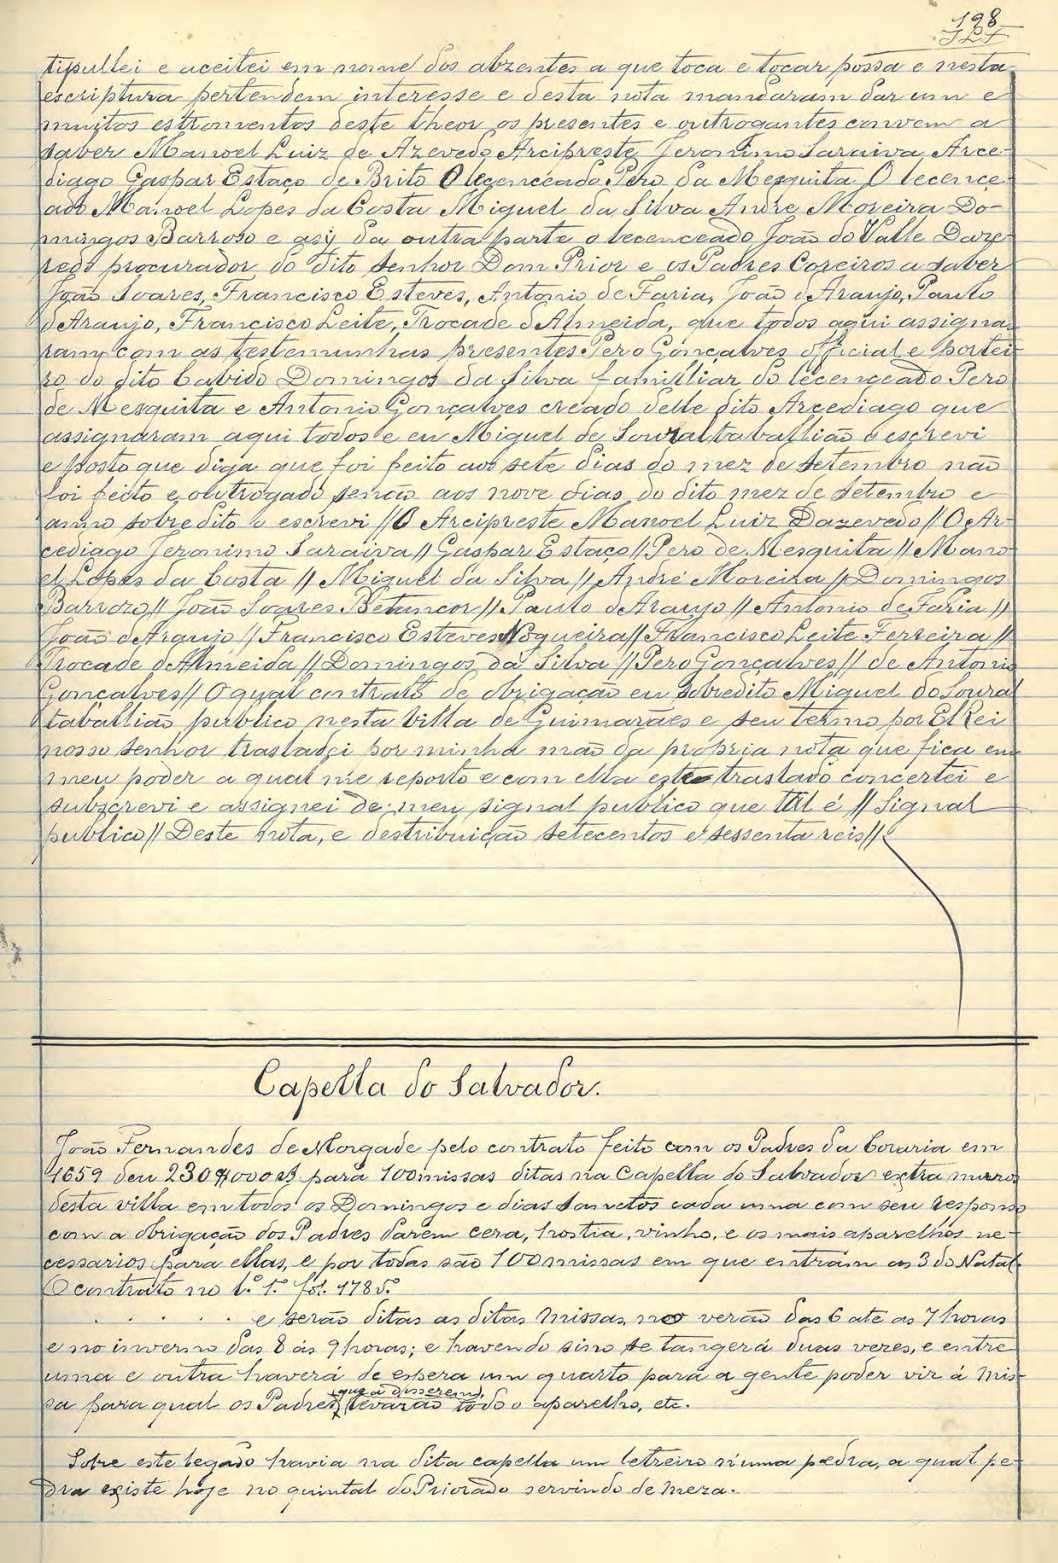 198
tipullei e aceitei em nome dos abzentes a que toca e tocar possa e nesta
escriptura pertendem interesse e desta nota mandaram dar um e
muitos estromentos deste theor os presentes e outrogantes convem a
saber Manoel Luiz de Azevedo Arcipreste Jeronimo Saraiva, Arce-
diago Gaspar Estaço de Brito O lecenceado Pero da Mesquita O lecence-
ado Manoel Lopes da Costa Miguel da Silva André Moreira Do-
mingos Barroso e asij da outra parte o lecenceado João do Valle Daze-
redo procurador do dito senhor Dom Prior e os Padres Coreiros a saber
João Soares, Francisco Esteves, Antonio de Faria, João d'Araujo, Paulo
d'Araujo, Francisco Leite, Trocade d'Almeida, que todos aqui assigna-
ram com as testemunhas presentes Pero Gonçalves official e portei-
ro do dito Cabido Domingos da Silva familliar do lecenceado Pero
de Mesquita e Antonio Gonçalves creado delle dito Arcediago que
assignaram aqui todos e eu Miguel de Soural taballião o escrevi
e posto que diga que foi feito aos sete dias do mez de setembro não
foi feito e outrogado senão aos nove dias do dito mez de setembro e
anno sobredito o escrevi // O Arcipreste Manoel Luiz Dazevedo // O Ar-
cediago Jeronimo Saraiva // Gaspar Estaço // Pero de Mesquita // Mano-
el Lopes da Costa // Miguel da Silva // André Moreira // Domingos
Barrozo // João Soares Betancor // Paulo d'Araujo // Antonio de Faria //
João d'Araujo // Francisco Esteves Nogueira // Francisco Leite Ferreira //
Trocade d'Almeida // Domingos da Silva // Pero Gonçalves // de Antonio
Gonçalves // O qual contrato de obrigação eu sobredito Miguel do Soural
taballião publico nesta Villa de Guimarães e seu termo por ElRei
nosso senhor trasladei por minha mão da propria nota que fica em
meu poder a qual me reporto e com ella este traslado concertei e
subscrevi e assignei de meu signal publico que tal é // Signal
publico // Deste nota, e destribuição setecentos e sessenta reis //
Capella do Salvador.
João Fernandes de Morgade pelo contrato feito com os Padres da Coraria em
1659 deu 230$000 rs para 100 missas ditas na Capella do Salvador extra muros
desta villa em todos os Domingos e dias sanctos cada uma com seu responso
com a obrigação dos Padres darem cera, hostia, vinho, e os mais aparelhos ne-
cessarios para ellas, e por todas são 100 missas em que entram as 3 do Natal.
O contrato no l.º 1.º fol. 178 v.º
. . . . . . e serão ditas as ditas missas, no verão das 6 até as 7 horas
e no inverno das 8 ás 9 horas; e havendo sino se tangerá duas vezes, e entre
uma e outra haverá de espera um quarto para a gente poder vir á mis-
sa para qual os Padres (que a disserem) levarão todo o aparelho, etc.
Sobre este legado havia na dita capella um letreiro n'uma pedra, a qual pe-
dra existe hoje no quintal do Priorado servindo de meza.